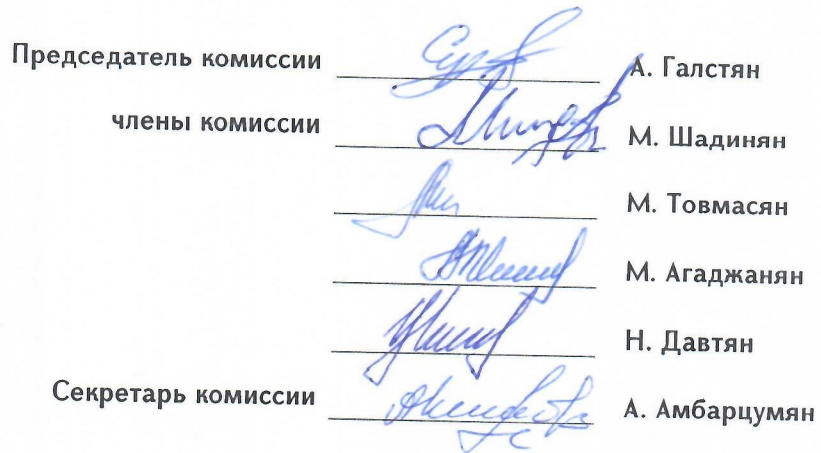 Председатель комиссии А. Галстян
члены комиссии М. Шадинян
М. Товмасян
М. Агаджанян
Н. Давтян
Секретарь комиссии А. Амбарцумян